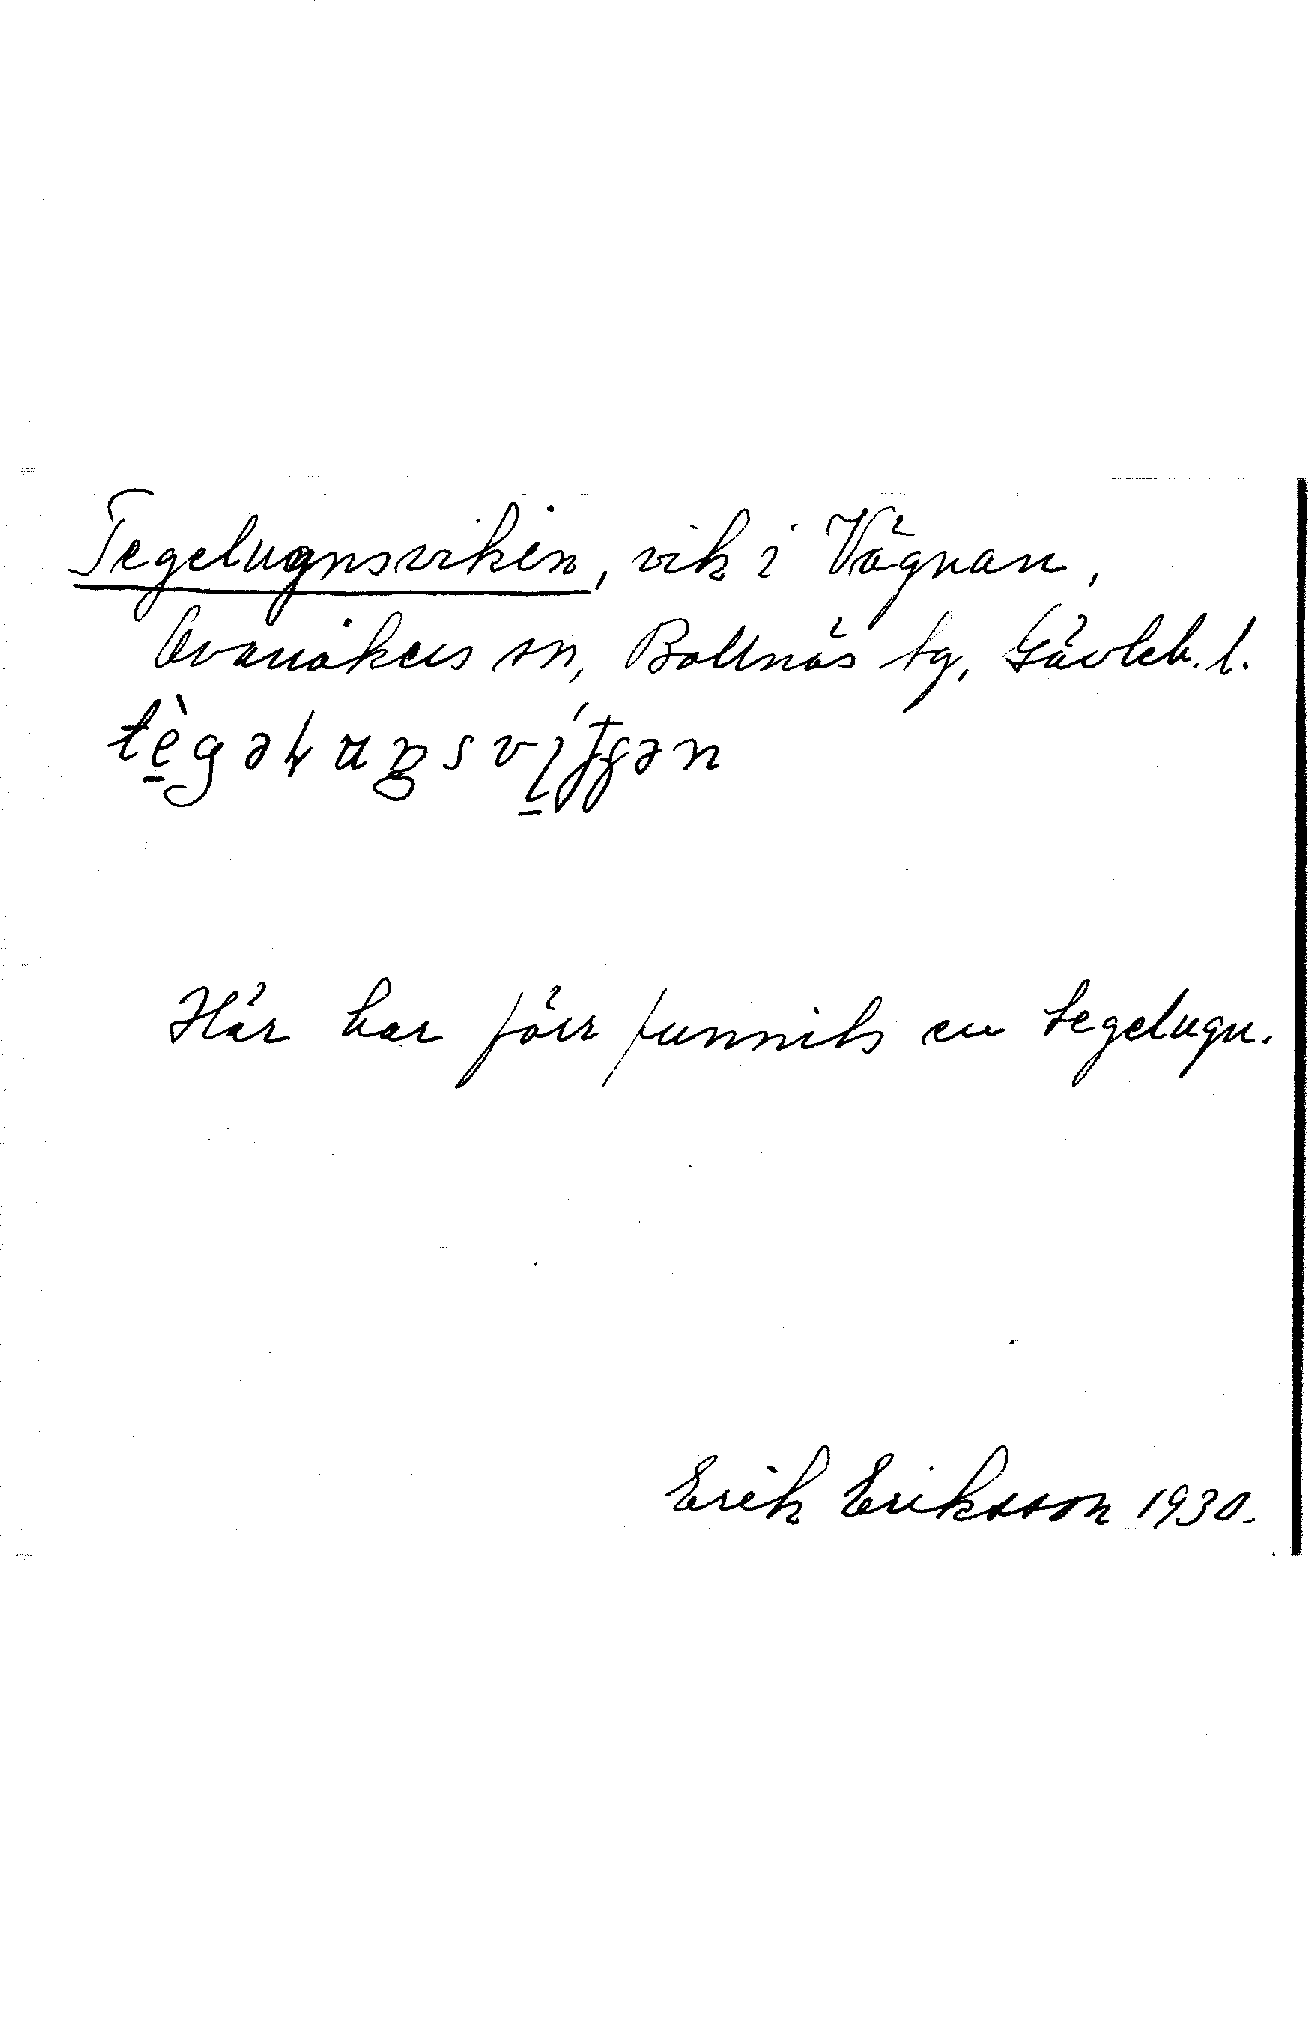 Tegelugnsviken, vik i Vägnan,
Ovanåkers sn, Bollnäs tg, Gävleb. l.
Här har förr funnits en tegelugn.
Erik Eriksson 1930.